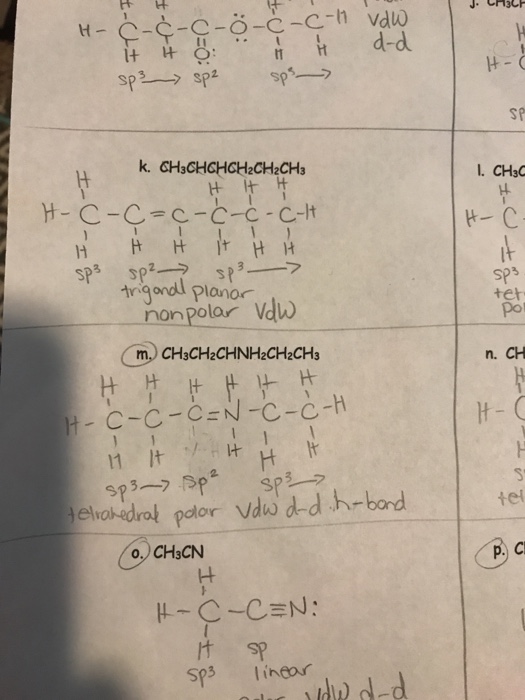 H H H
H-C-C-C-Ö-C-C-H vdw
H H O: H H d-d
sp³ → sp² sp³ →
J. CH3CH
H-C
sp
k. CH3CHCHCH2CH2CH3
H H H H
H-C-C=C-C-C-C-H
H H H H H H
sp³ sp² → sp³ →
trigonal planar
nonpolar vdw
l. CH3C
H
H-C
H
sp³
tet
po
m. CH3CH2CHNH2CH2CH3
H H H H H H
H-C-C-C=N-C-C-H
H H H H H
sp³ → sp² sp³ →
tetrahedral polar vdw d-d h-bond
n. CH
H
H-C
H
s
tet
o. CH3CN
H
H-C-C≡N:
H sp
sp³ linear
vdw d-d
p. C